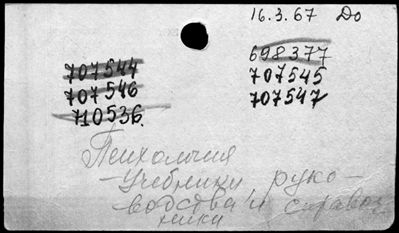 16.3.67 До
707544
707546
710536.
698377
707545
707547
Психология
- Учебники, руко-
водства и справоч
ники